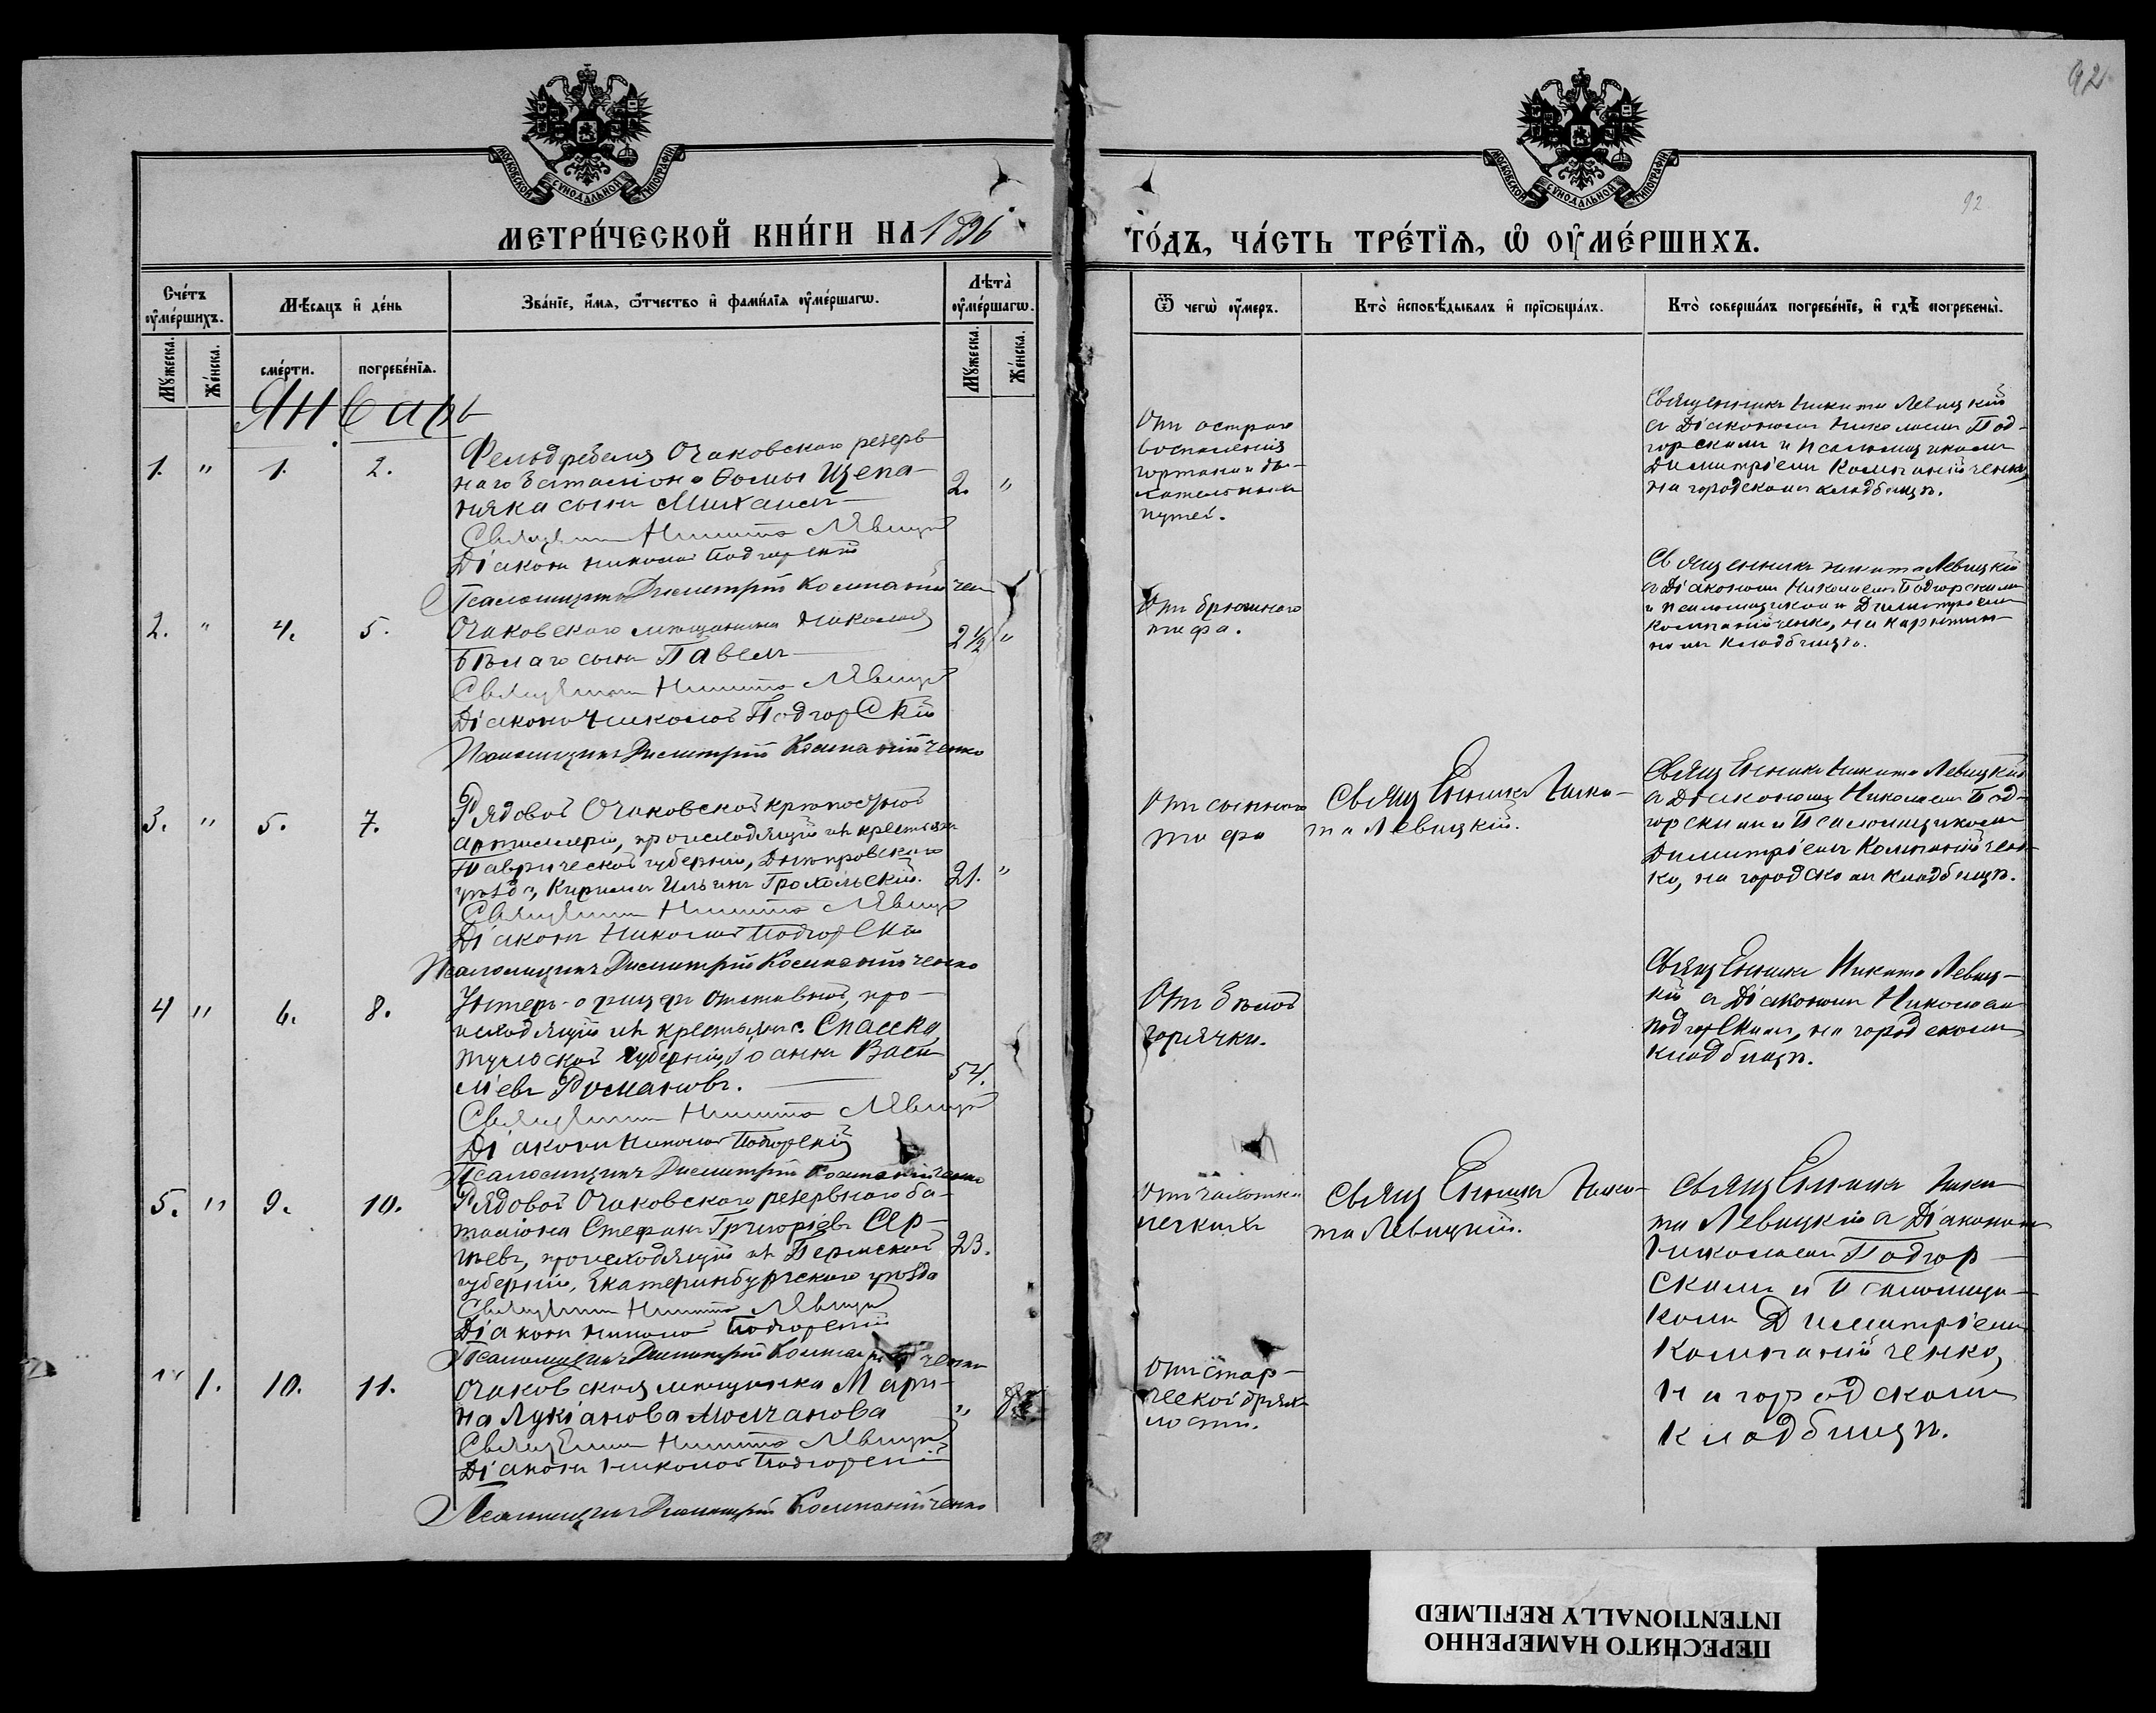 92
МОСКОВСКОЙ СѴНОДАЛЬНОЙ ТИПОГРАФІИ
МОСКОВСКОЙ СѴНОДАЛЬНОЙ ТИПОГРАФІИ
92
МЕТРИ́ЧЕСКОЙ КНИ́ГИ НА 1896
ГО́ДЪ, ЧА́СТЬ ТРЕ́ТЇѦ, Ѡ҆ ОУ҆МЕ́РШИХЪ.
Сче́тъ оу҆ме́ршихъ.
Мѣ́сѧцъ и҆ де́нь
Зва́нїе, и҆́мѧ, ѻ҆́тчество и҆ фами́лїѧ оу҆ме́ршагѡ.
Лѣта̀ оу҆ме́ршагѡ.
Мꙋ́жеска.
Же́нска.
сме́рти.
погребе́нїѧ.
Мꙋ́жеска.
Же́нска.
Ѿ чегѡ̀ оу҆́меръ.
Кто̀ и҆сповѣ́дывалъ и҆ прїѡбща́лъ.
Кто̀ соверша́лъ погребе́нїе, и҆ гдѣ̀ погребены̀.
Январь
1. " 1. 2.
Фельдфебеля Очаковскаго резерв-
наго баталіона Ѳомы Щепа-
няка сынъ Михаилъ
2. "
Священникъ Никита Левицкій
Діаконъ Николай Подгорскій
Псаломщикъ Димитрій Компанійчен
Отъ остраго
воспаленія
гортани и ды-
хательныхъ
путей.
Священникъ Никита Левицкій
съ Діакономъ Николаемъ Под-
горскимъ и Псаломщикомъ
Димитріемъ Компанійченко,
на городскомъ кладбищѣ.
2. " 4. 5.
Очаковскаго мѣщанина Николая
Бѣлаго сынъ Павелъ
2½ "
Священникъ Никита Левицкій
Діаконъ Николай Подгорскій
Псаломщикъ Димитрій Компанійченко
Отъ брюшного
тифа.
Священникъ Никита Левицкій
съ Діакономъ Николаемъ Подгорскимъ
и псаломщикомъ Димитріемъ
Компанійченко, на карантин-
номъ кладбищѣ.
3. " 5. 7.
Рядовой Очаковской крѣпостной
артиллеріи, происходящій изъ крестьянъ
Таврической губерніи, Днѣпровскаго
уѣзда, Кириллъ Ильинъ Грохольскій.
21. "
Священникъ Никита Левицкій
Діаконъ Николай Подгорскій
Псаломщикъ Димитрій Компанійченко
Отъ сыпного
тифа
Священникъ Ники-
та Левицкій.
Священникъ Никита Левицкій
съ Діакономъ Николаемъ Под-
горскимъ и Псаломщикомъ
Димитріемъ Компанійчен-
ко, на городскомъ кладбищѣ.
4 " 6. 8.
Унтеръ-офицеръ отставной, про-
исходящій изъ крестьянъ с. Спасска
Тульской губерніи, Іоаннъ Васи-
ліевъ Романовъ.
54.
Священникъ Никита Левицкій
Діаконъ Николай Подгорскій
Псаломщикъ Димитрій Компанійченко
Отъ бѣлой
горячки.
Священникъ Никита Левиц-
кій съ Діакономъ Николаемъ
Подгорскимъ, на городскомъ
кладбищѣ.
5. " 9. 10.
Рядовой Очаковскаго резервнаго ба-
таліона Стефанъ Григоріевъ Сер-
гѣевъ, происходящій изъ Пермской
губерніи, Екатеринбургскаго уѣзда
23.
Священникъ Никита Левицкій
Діаконъ Николай Подгорскій
Псаломщикъ Димитрій Компанійченко
Отъ чахотки
легкихъ
Священникъ Ники-
та Левицкій.
Священникъ Ники-
та Левицкій съ Діакономъ
Николаемъ Подгор-
скимъ и Псаломщи-
комъ Димитріемъ
Компанійченко,
на городскомъ
кладбищѣ.
" 1. 10. 11.
Очаковская мѣщанка Мари-
на Лукіанова Молчанова
"
Священникъ Никита Левицкій
Діаконъ Николай Подгорскій
Псаломщикъ Димитрій Компанійченко
Отъ стар-
ческой дрях-
лости.
ПЕРЕСНЯТО НАМЕРЕННО
INTENTIONALLY REFILMED